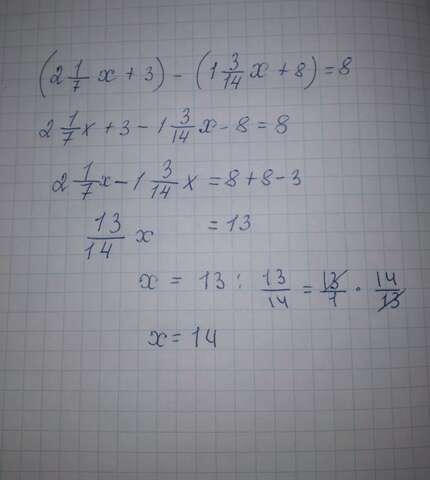 (2 1/7 x + 3) - (1 3/14 x + 8) = 8
2 1/7 x + 3 - 1 3/14 x - 8 = 8
2 1/7 x - 1 3/14 x = 8 + 8 - 3
13/14 x = 13
x = 13 : 13/14 = 13/1 · 14/13
x = 14